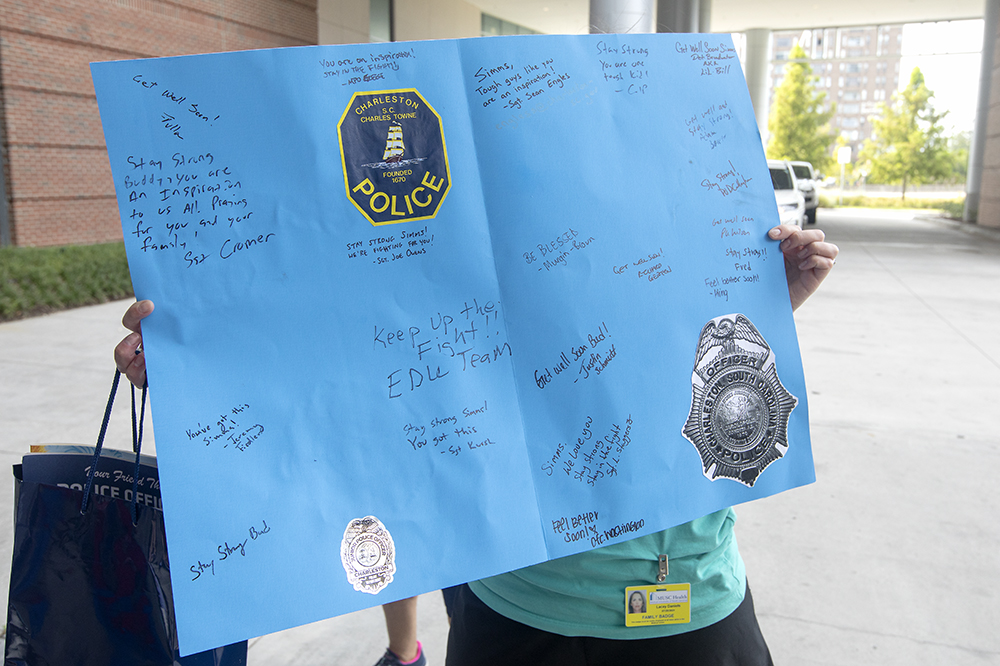 You are an inspiration!
STAY IN THE FIGHT!
Get Well Soon!
Stay Strong
Buddy, you are
An Inspiration
to us All! Praying
for you, and your
family,
Sgt Cromer
CHARLESTON
S.C.
CHARLES TOWNE
FOUNDED
1670
POLICE
STAY STRONG SIMMS!
WE'RE FIGHTING FOR YOU!
-SGT. JOE OWENS
Keep up the
Fight!!
EDU TEAM
You've got this
Simms!
Stay strong Simms!
You got this
Stay Strong Bud
POLICE OFFICER
CHARLESTON
Simms,
Tough guys like you
are an inspiration!
-Sgt Sean Engles
Stay Strong
You are one
tough kid!
Get Well Soon Simms
AKA
Lil Bill
Get well and
Stay strong!
Stay Strong!
Get well soon
Stay strong!!
Fred
Feel better soon!
-Ming
BE BLESSED
Get well soon!
Get Well Soon Bud!
-Justin
Schmidt
Simms.
We love you
Stay strong
Stay in the fight
Feel Better
Soon!
OFFICER
CHARLESTON, SOUTH CAROLINA
POLICE
Your Friend The
POLICE OFFICER
MUSC Health
FAMILY BADGE